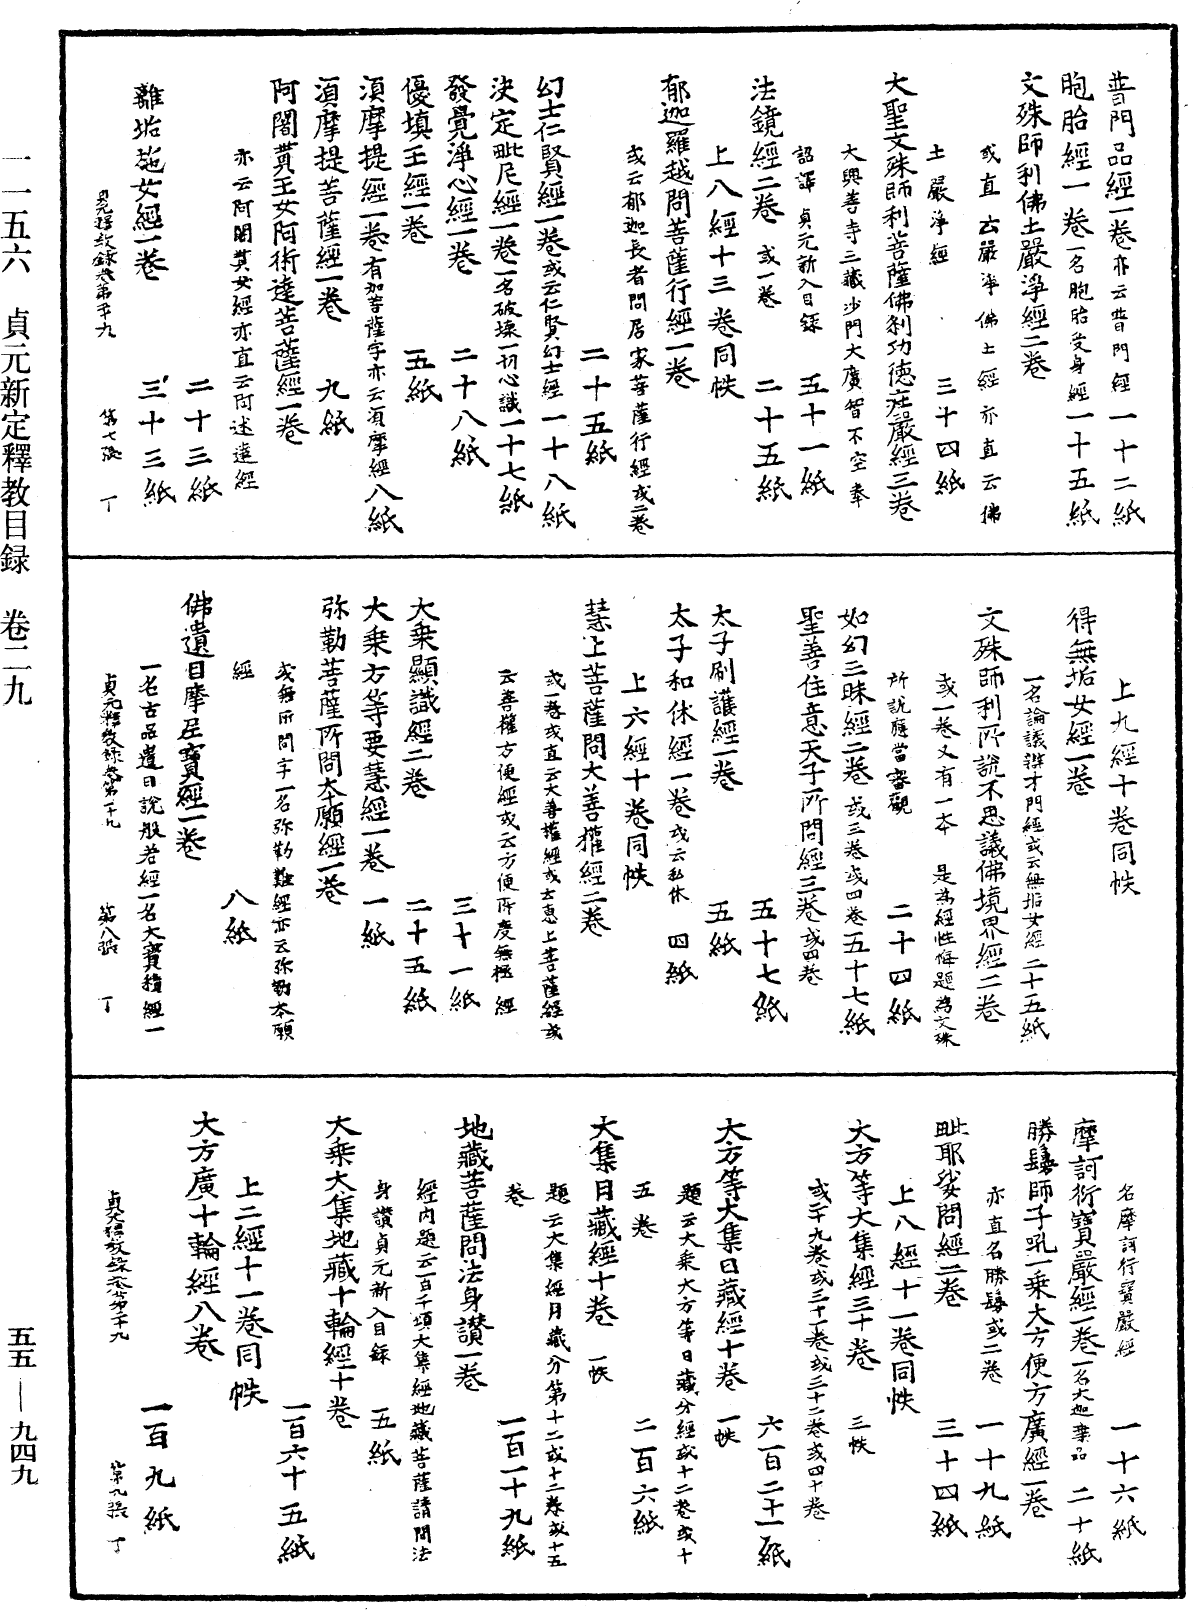 一一五六　貞元新定釋教目録　卷二九
五五—九四九
普門品經一卷亦云普門經一十二紙
胞胎經一卷一名胞胎受身經一十五紙
文殊師利佛土嚴淨經二卷
或直云嚴淨佛土經亦直云佛
土嚴淨經　三十四紙
大聖文殊師利菩薩佛剎功德莊嚴經三卷
大興善寺三藏沙門大廣智不空奉
詔譯　貞元新入目録　五十一紙
法鏡經二卷　或一卷　二十五紙
上八經十三卷同帙
郁迦羅越問菩薩行經一卷
或云郁迦長者問居家菩薩行經或二卷
二十五紙
幻士仁賢經一卷或云仁賢幻士經一十八紙
決定毗尼經一卷一名破壞一切心識一十七紙
發覺淨心經一卷　二十八紙
優填王經一卷　五紙
須摩提經一卷有加菩薩字亦云須摩經八紙
須摩提菩薩經一卷　九紙
阿闍貰王女阿術達菩薩經一卷
亦云阿闍貰女經亦直云阿述達經
二十三紙
離垢施女經一卷　三十三紙
貞元釋教録卷第二十九　第七張　丁
上九經十卷同帙
得無垢女經一卷
一名論議辯才門經或云無垢女經二十五紙
文殊師利所說不思議佛境界經二卷
或一卷又有一本　是為經性悔題為文殊
所說應當審觀　二十四紙
如幻三昧經二卷或三卷或四卷五十七紙
聖善住意天子所問經三卷或四卷
五十七紙
太子刷護經一卷　五紙
太子和休經一卷或云私休　四紙
上六經十卷同帙
慧上菩薩問大善權經二卷
或一卷或直云大善權經或云惠上菩薩經或
云善權方便經或云方便所度無極經
三十一紙
大乘顯識經二卷　二十五紙
大乘方等要慧經一卷　一紙
弥勒菩薩所問本願經一卷
或無所問字一名弥勒難經亦云弥勒本願
經　八紙
佛遺日摩尼寶經一卷
一名古品遺日說般若經一名大寶積經一
貞元釋教録卷第二十九　第八張　丁
名摩訶衍寶嚴經　一十六紙
摩訶衍寶嚴經一卷一名大迦葉品　二十紙
勝鬘師子吼一乘大方便方廣經一卷
亦直名勝鬘或二卷　一十九紙
毗耶娑問經二卷　三十四紙
上八經十一卷同帙
大方等大集經三十卷　三帙
或二十九卷或三十一卷或三十二卷或四十卷
六百二十一紙
大方等大集日藏經十卷　一帙
題云大乘大方等日藏分經或十二卷或十
五卷　二百六紙
大集月藏經十卷　一帙
題云大集經月藏分第十二或十二卷或十五
卷　一百一十九紙
地藏菩薩問法身讚一卷
經內題云百千頌大集經地藏菩薩請問法
身讚貞元新入目録　五紙
大乘大集地藏十輪經十卷
一百六十五紙
上二經十一卷同帙
大方廣十輪經八卷　一百九紙
貞元釋教録卷第二十九　第九張　丁